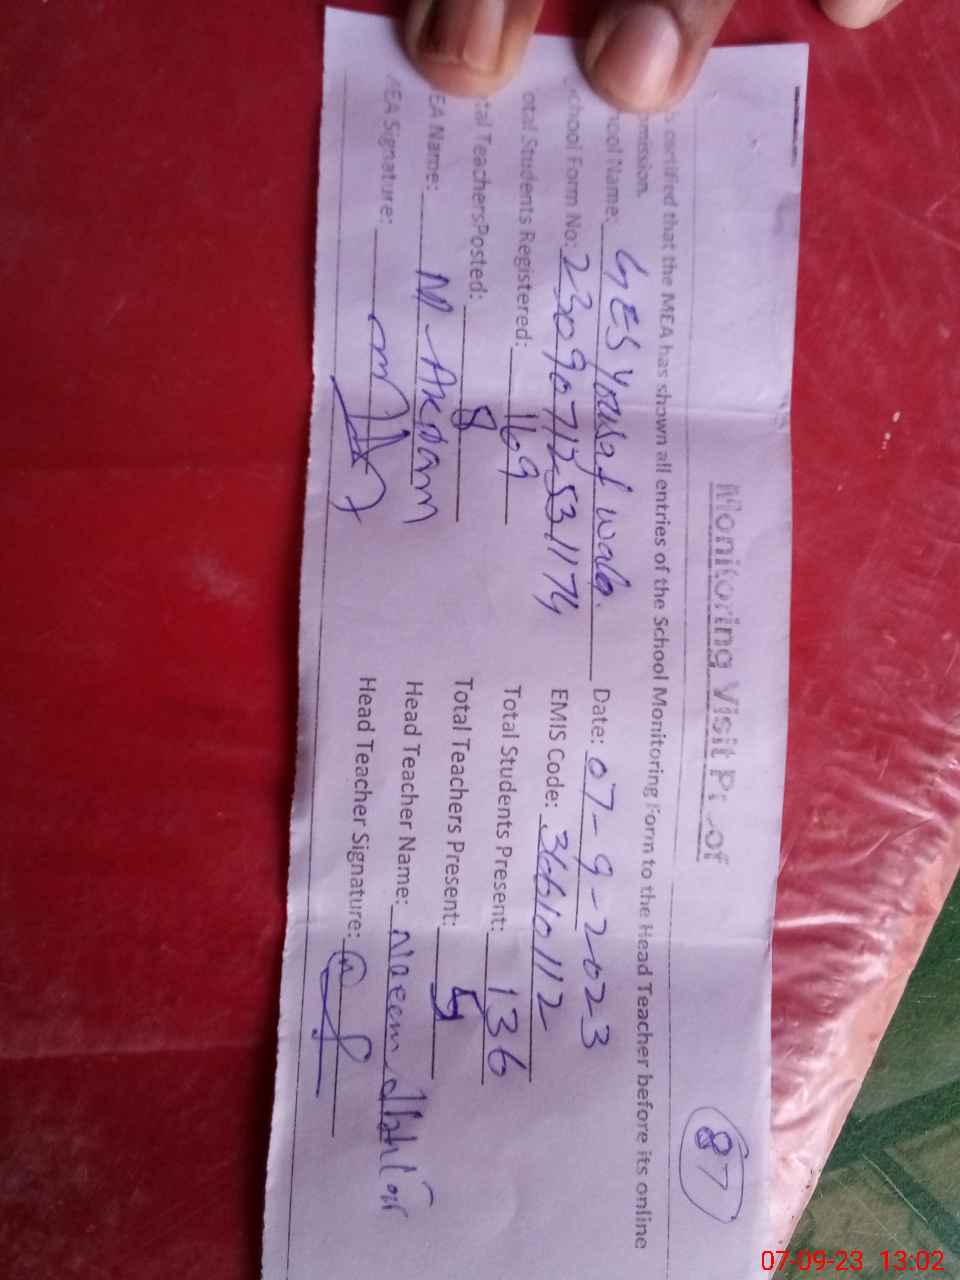 Monitoring Visit Proof
87
certified that the MEA has shown all entries of the School Monitoring Form to the Head Teacher before its online
mission.
ool Name: GES Yousaf wala. Date: 07-9-2023
chool Form No: EMIS Code: 36610112
otal Students Registered: 169 Total Students Present: 136
tal TeachersPosted: 8 Total Teachers Present: 5
EA Name: M-Akram Head Teacher Name: Naeem
EA Signature: Head Teacher Signature:
07-09-23 13:02